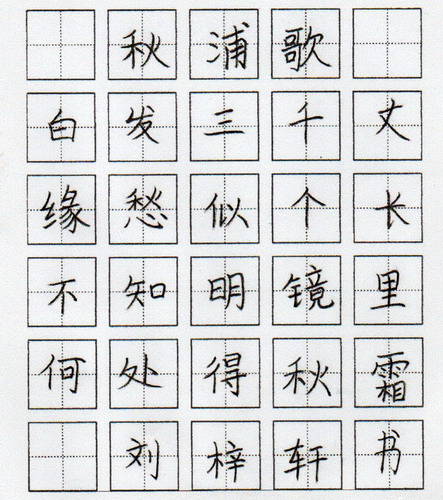 秋浦歌
白发三千丈
缘愁似个长
不知明镜里
何处得秋霜
刘梓轩书